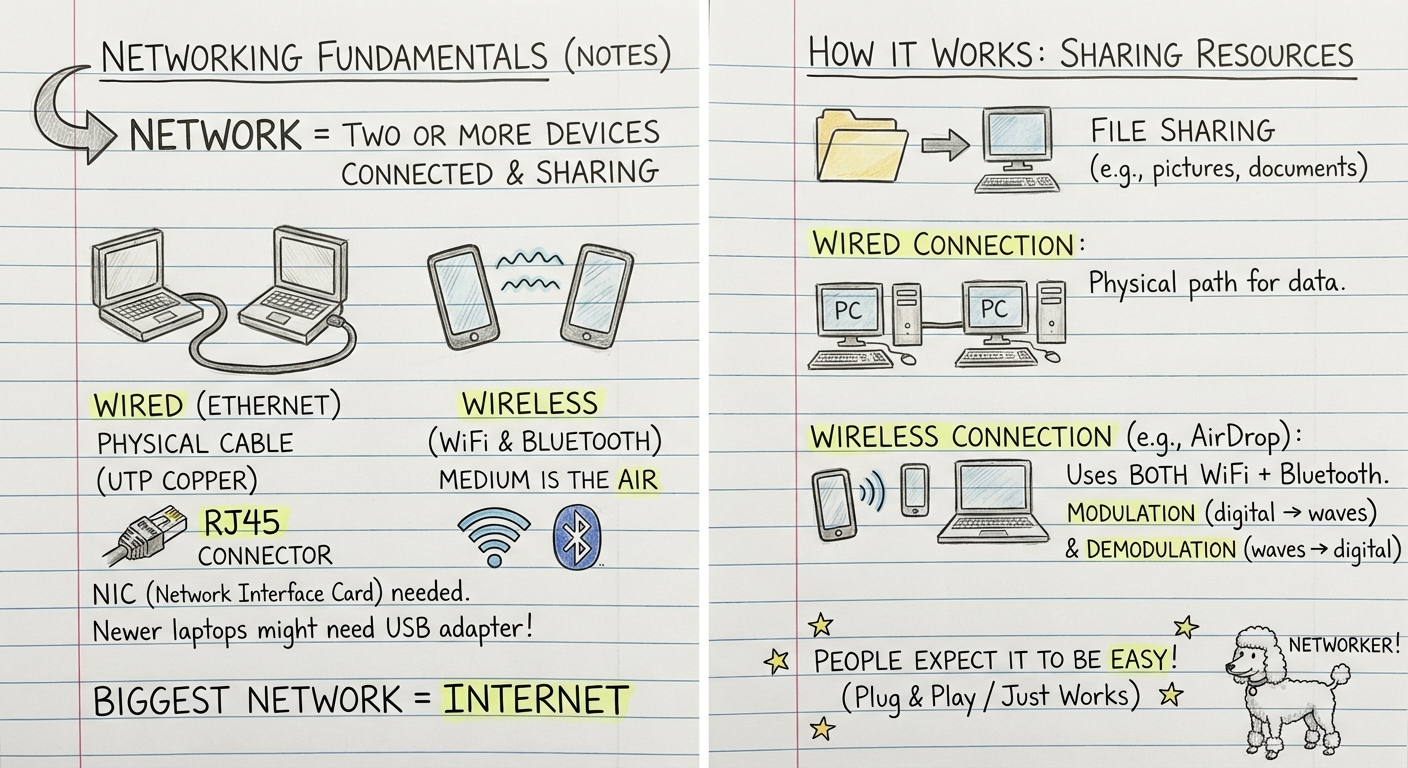 NETWORKING FUNDAMENTALS (NOTES)
NETWORK = TWO OR MORE DEVICES
CONNECTED & SHARING
WIRED (ETHERNET)
PHYSICAL CABLE
(UTP COPPER)
RJ45
CONNECTOR
WIRELESS
(WiFi & BLUETOOTH)
MEDIUM IS THE AIR
NIC (Network Interface Card) needed.
Newer laptops might need USB adapter!
BIGGEST NETWORK = INTERNET
HOW IT WORKS: SHARING RESOURCES
FILE SHARING
(e.g., pictures, documents)
WIRED CONNECTION:
Physical path for data.
PC
PC
WIRELESS CONNECTION (e.g., AirDrop):
Uses BOTH WiFi + Bluetooth.
MODULATION (digital → waves)
& DEMODULATION (waves → digital)
PEOPLE EXPECT IT TO BE EASY!
(Plug & Play / Just Works)
NETWORKER!